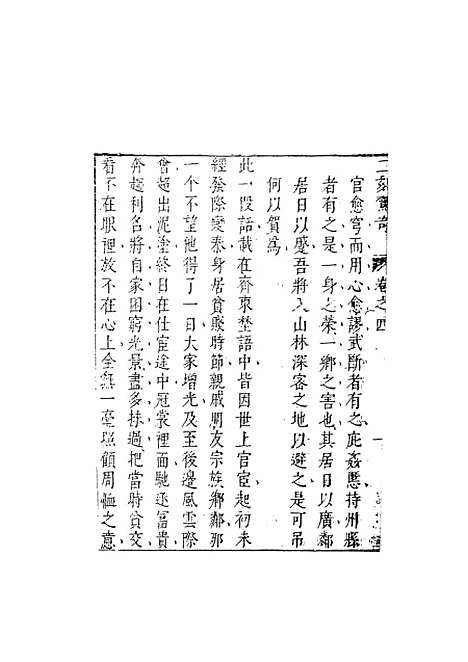 二刻驚奇 卷之四 一
官愈穹而用心愈謬武斷者有之庇姦慝持州縣
者有之是一身之榮一鄉之害也其居日以廣鄰
居日以蹙吾將入山林深密之地以避之是可吊
何以賀為
此一段話載在齊東埜語中皆因世上官宦起初未
經發際變泰身居貧賤時節親戚朋友宗族鄉鄰那
一个不望他得了一日大家增光及至後邊風雲際
會超出泥塗終日在仕宦途中冠裳裡面馳逐富貴
奔趨利名將自家困窮光景盡多抹過把當時貧交
看不在眼裡放不在心上全無一毫照顧周恤之意